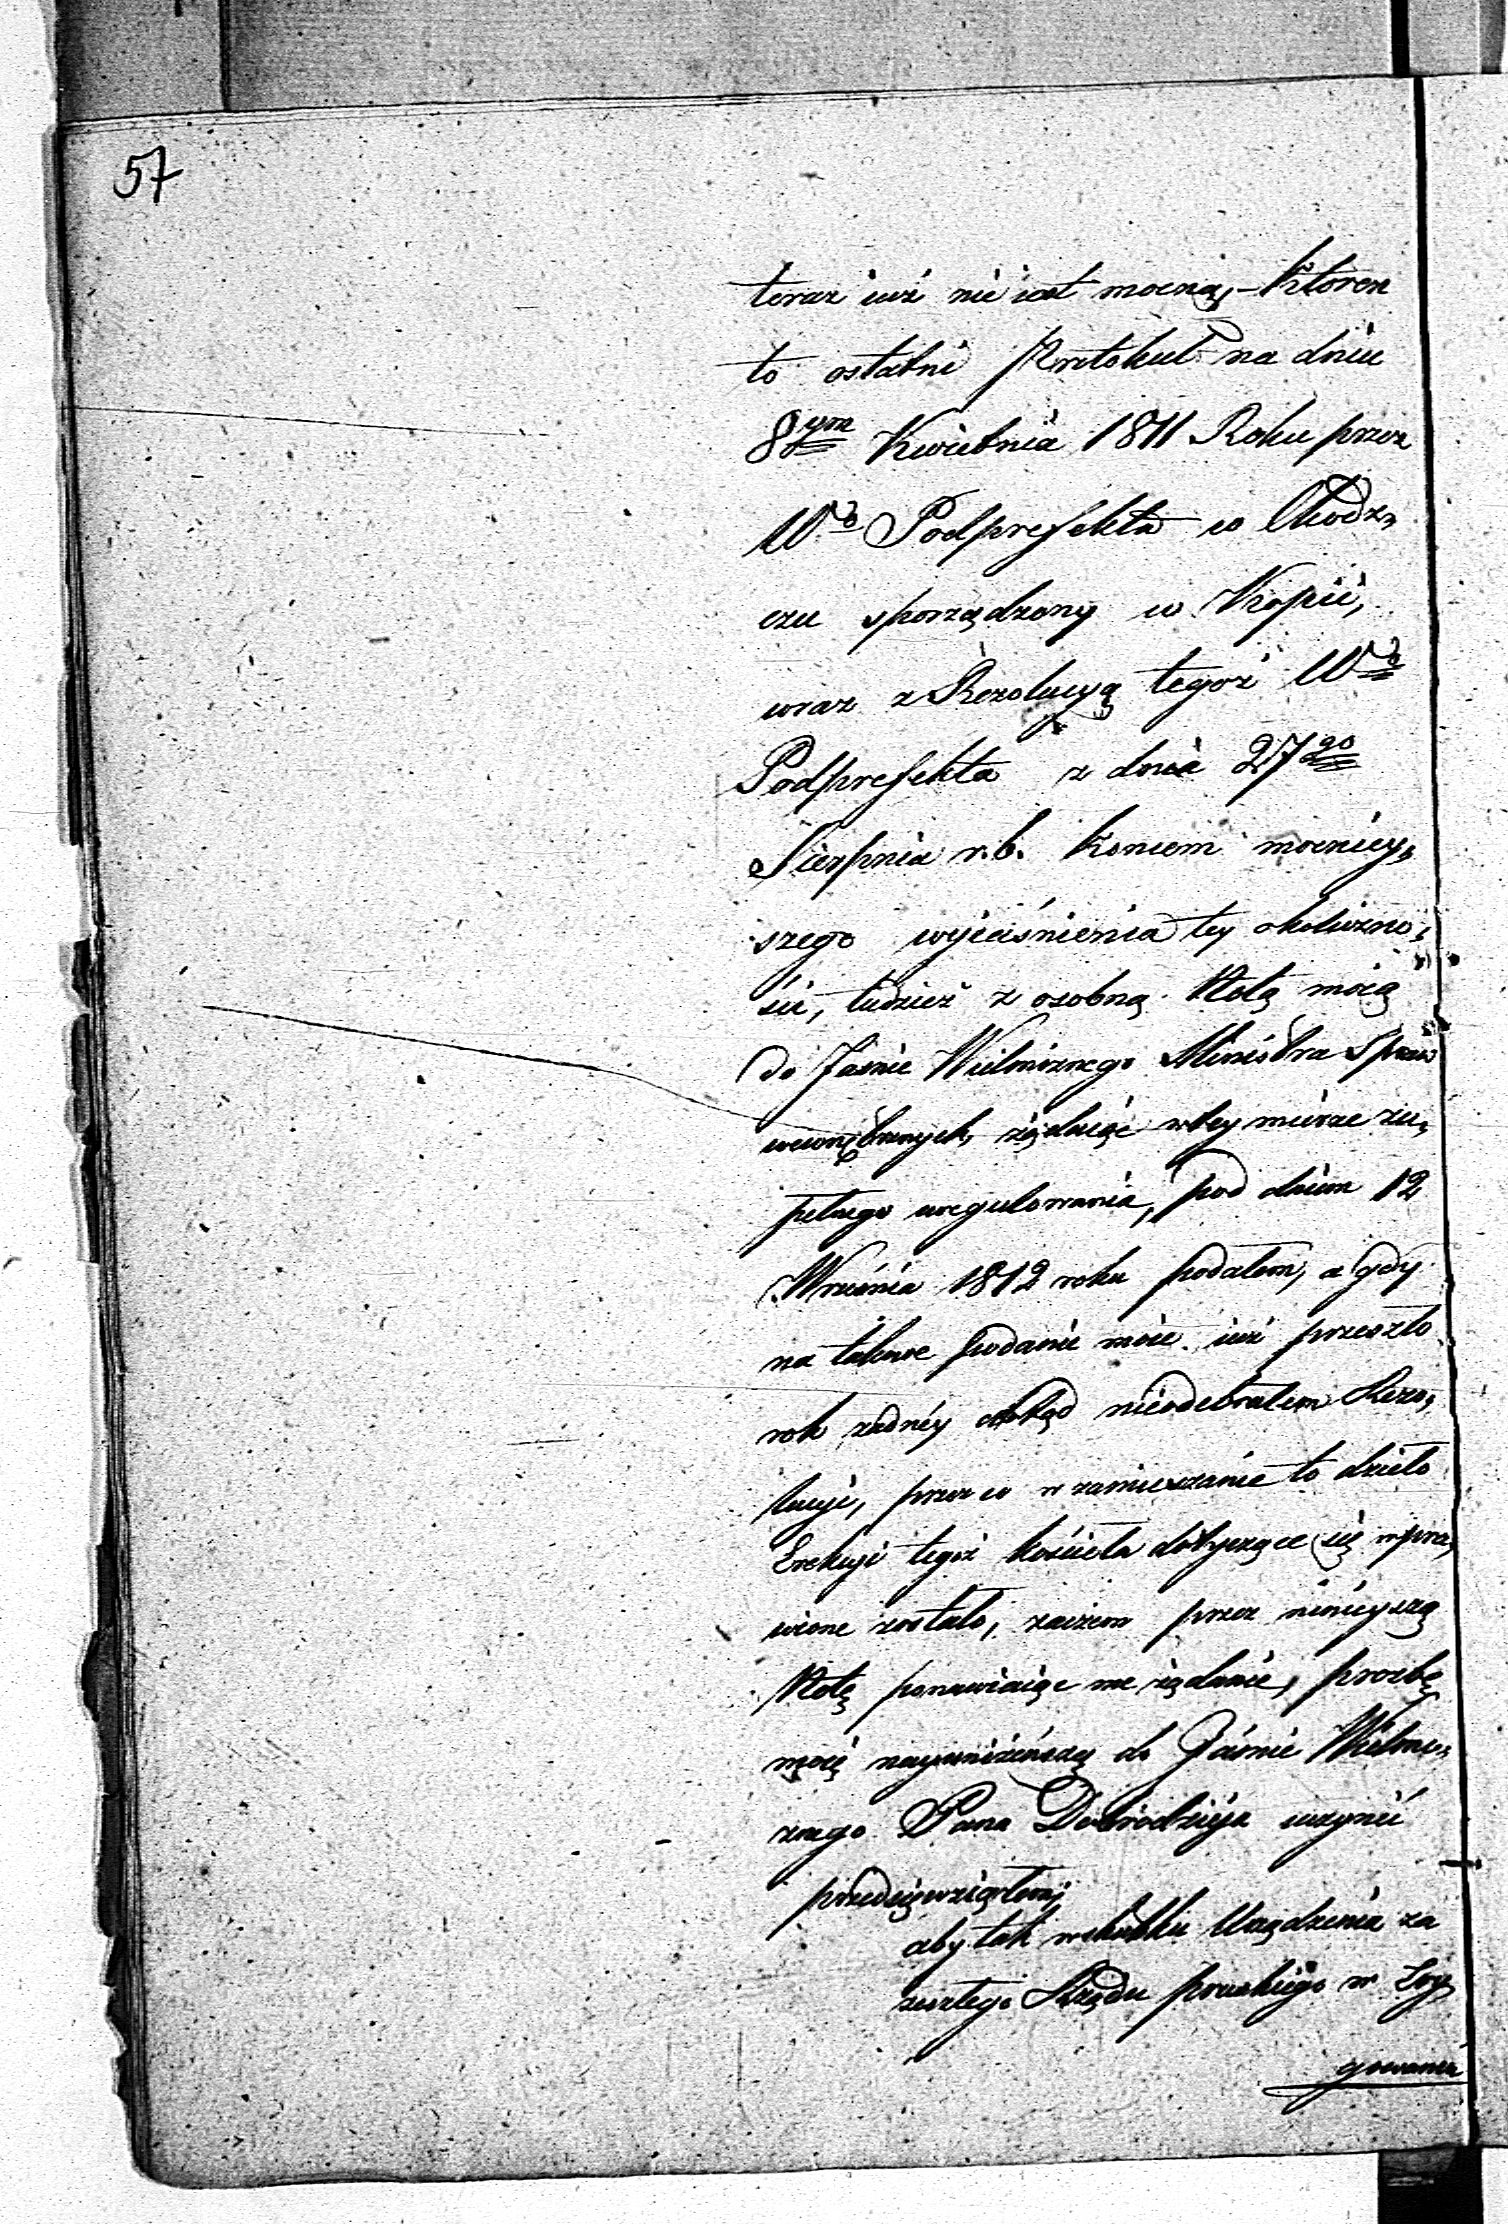 57
teraz iuż nie iest mocną, – Ktoren
to ostatni Protokuł na dniu
8ym Kwietnia 1811 Roku przez
Wo Podprefekta w
czu sporządzony w Kopii,
wraz z Rezolucyą tegoż Wo
Podprefekta z dnia 27go
Sierpnia r. b. koncem mocniey,
szego wyiaśnienia tey okoliczno,
ści, tudzież z osobną Notą moią
do Jaśnie Wielmożnego Ministra Spraw
wewnętrznych, żądaiąc w tey mierze zu,
pełnego uregulowania, pod dniem 12
Września 1812 roku podałem, a gdy
na takowe podanie moie iuż przeszło
rok żadnéy dotąd nieodebrałem Rezo,
lucyi, przez co w zamieszanie to dzieło
Erekcyi tegoż kościoła dotyczące się wpra,
wione zostało, zaczem przez ninieyszą
Notę ponawiaiąc me żądanie, prozbę
moię nayuniżeńszą do Jaśnie Wielmo,
żnego Pana Dobrodzieja uczynić
przedsięwziąłem,
aby tak w skutku Urządzenia za
zeszłego Rządu pruskiego w
gowaniu